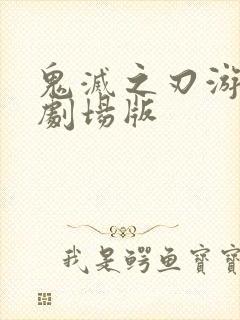 鬼滅之刃游
劇場版
我是鳄鱼寶寶